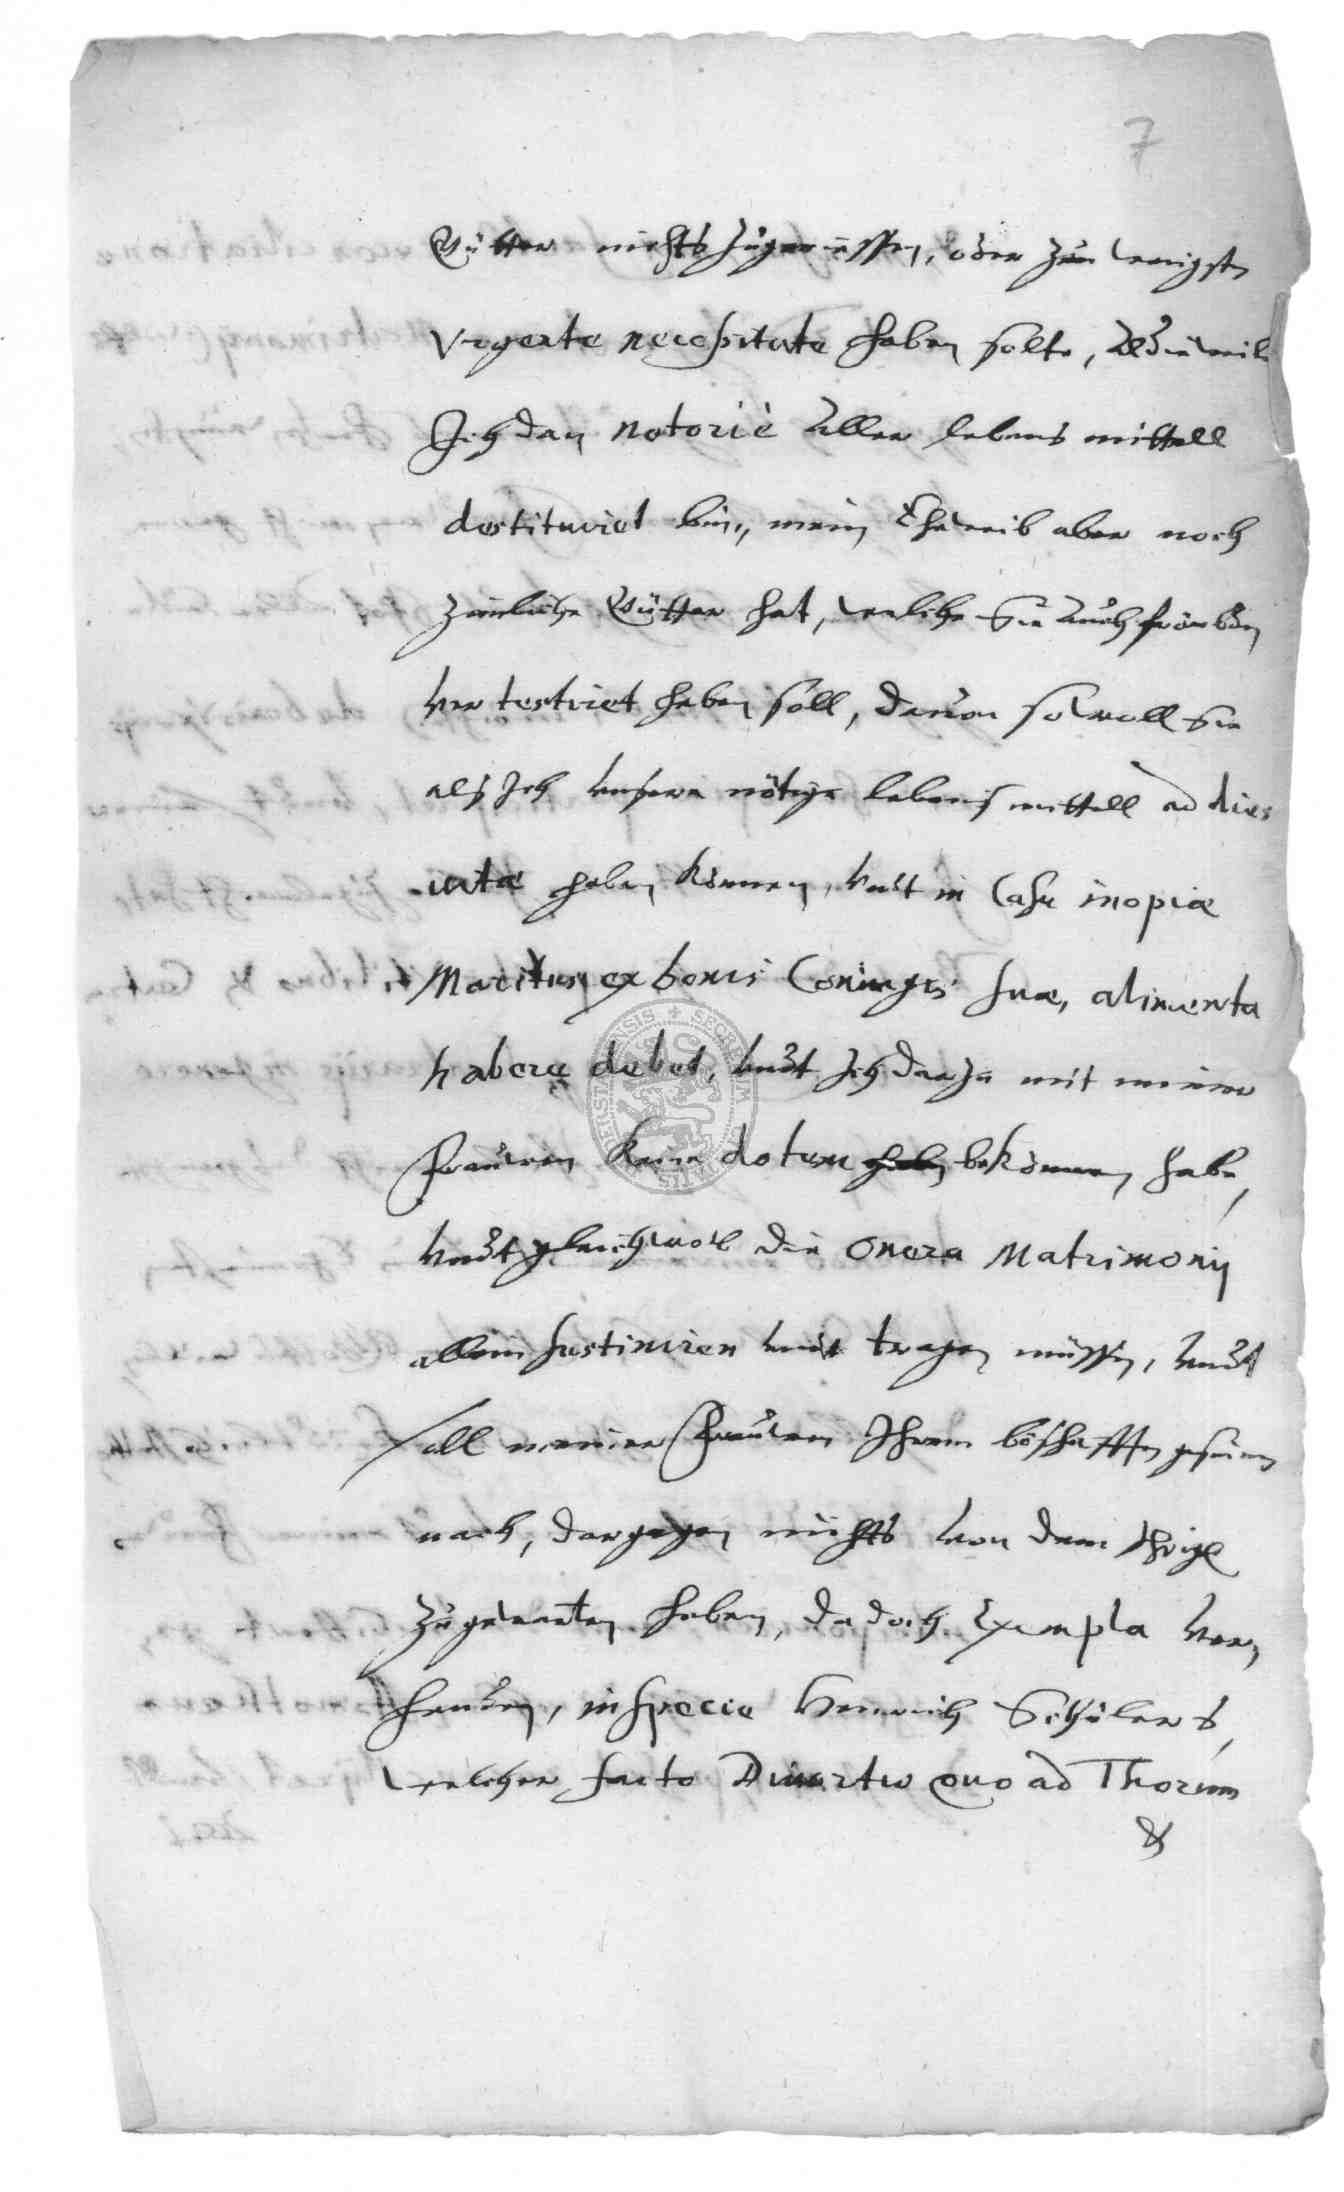 7
Gütter nichts zugeniessen, oder zum wenigsten
Urgente necessitate haben solte, Aldieweil
Ich dan notoriè aller lebens mittell
destituiret bin, mein Eheweib aber noch
zimliche Gütter hat, welche Sie auch frömbden
ver testiret haben soll, dauon sowoll Sie
als Ich unsere nötige lebens mittell ad dies
vitæ haben können, undt in Casu inopiæ
Maritus ex bonis Coniugis suæ, alimenta
habere debet, undt Ich da Ja mit meiner
Frauwen keine dotem haben bekommen habe,
undt gleichwol die onera Matrimonij
allein sustiniren undt tragen müssen, undt
soll meiner Frauwen Ihrem böshafften gesinne
nach, dargegen nichts von dem Ihrige
zugewarten haben, da doch Exempla ver
handen, in specie Henrich Schölers,
welcher facto Diuortio quo ad Thorum
&